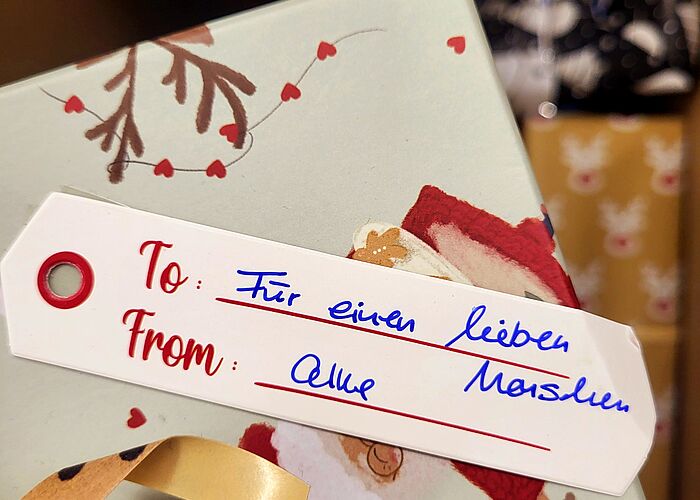 To: Für einen lieben
From: Menschen